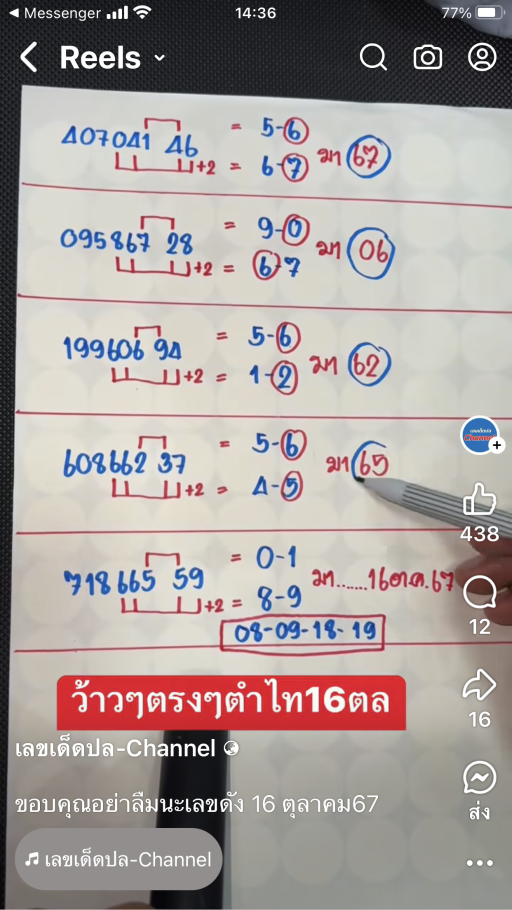 Messenger 14:36 77%
Reels
407041 46 = 5-6 มา 67
+2 = 6-7
095867 28 = 9-0 มา 06
+2 = 6-7
199606 94 = 5-6 มา 62
+2 = 1-2
608662 37 = 5-6 มา 65
+2 = 4-5
718665 59 = 0-1 มา......16ต.ค.67
+2 = 8-9
08-09-18-19
438
12
16
ส่ง
ว้าวๆตรงๆตำไท16ตล
เลขเด็ดปล-Channel
ขอบคุณอย่าลืมนะเลขดัง 16 ตุลาคม67
เลขเด็ดปล-Channel